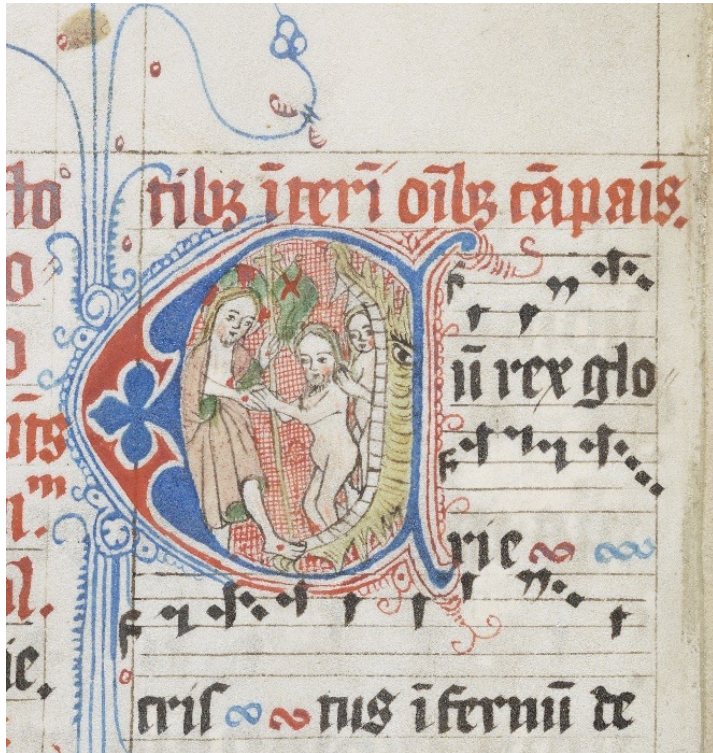 tibꝫ īterī oībꝫ cāpaīs.
Cū rex glo
rie
cris tus īfernū de